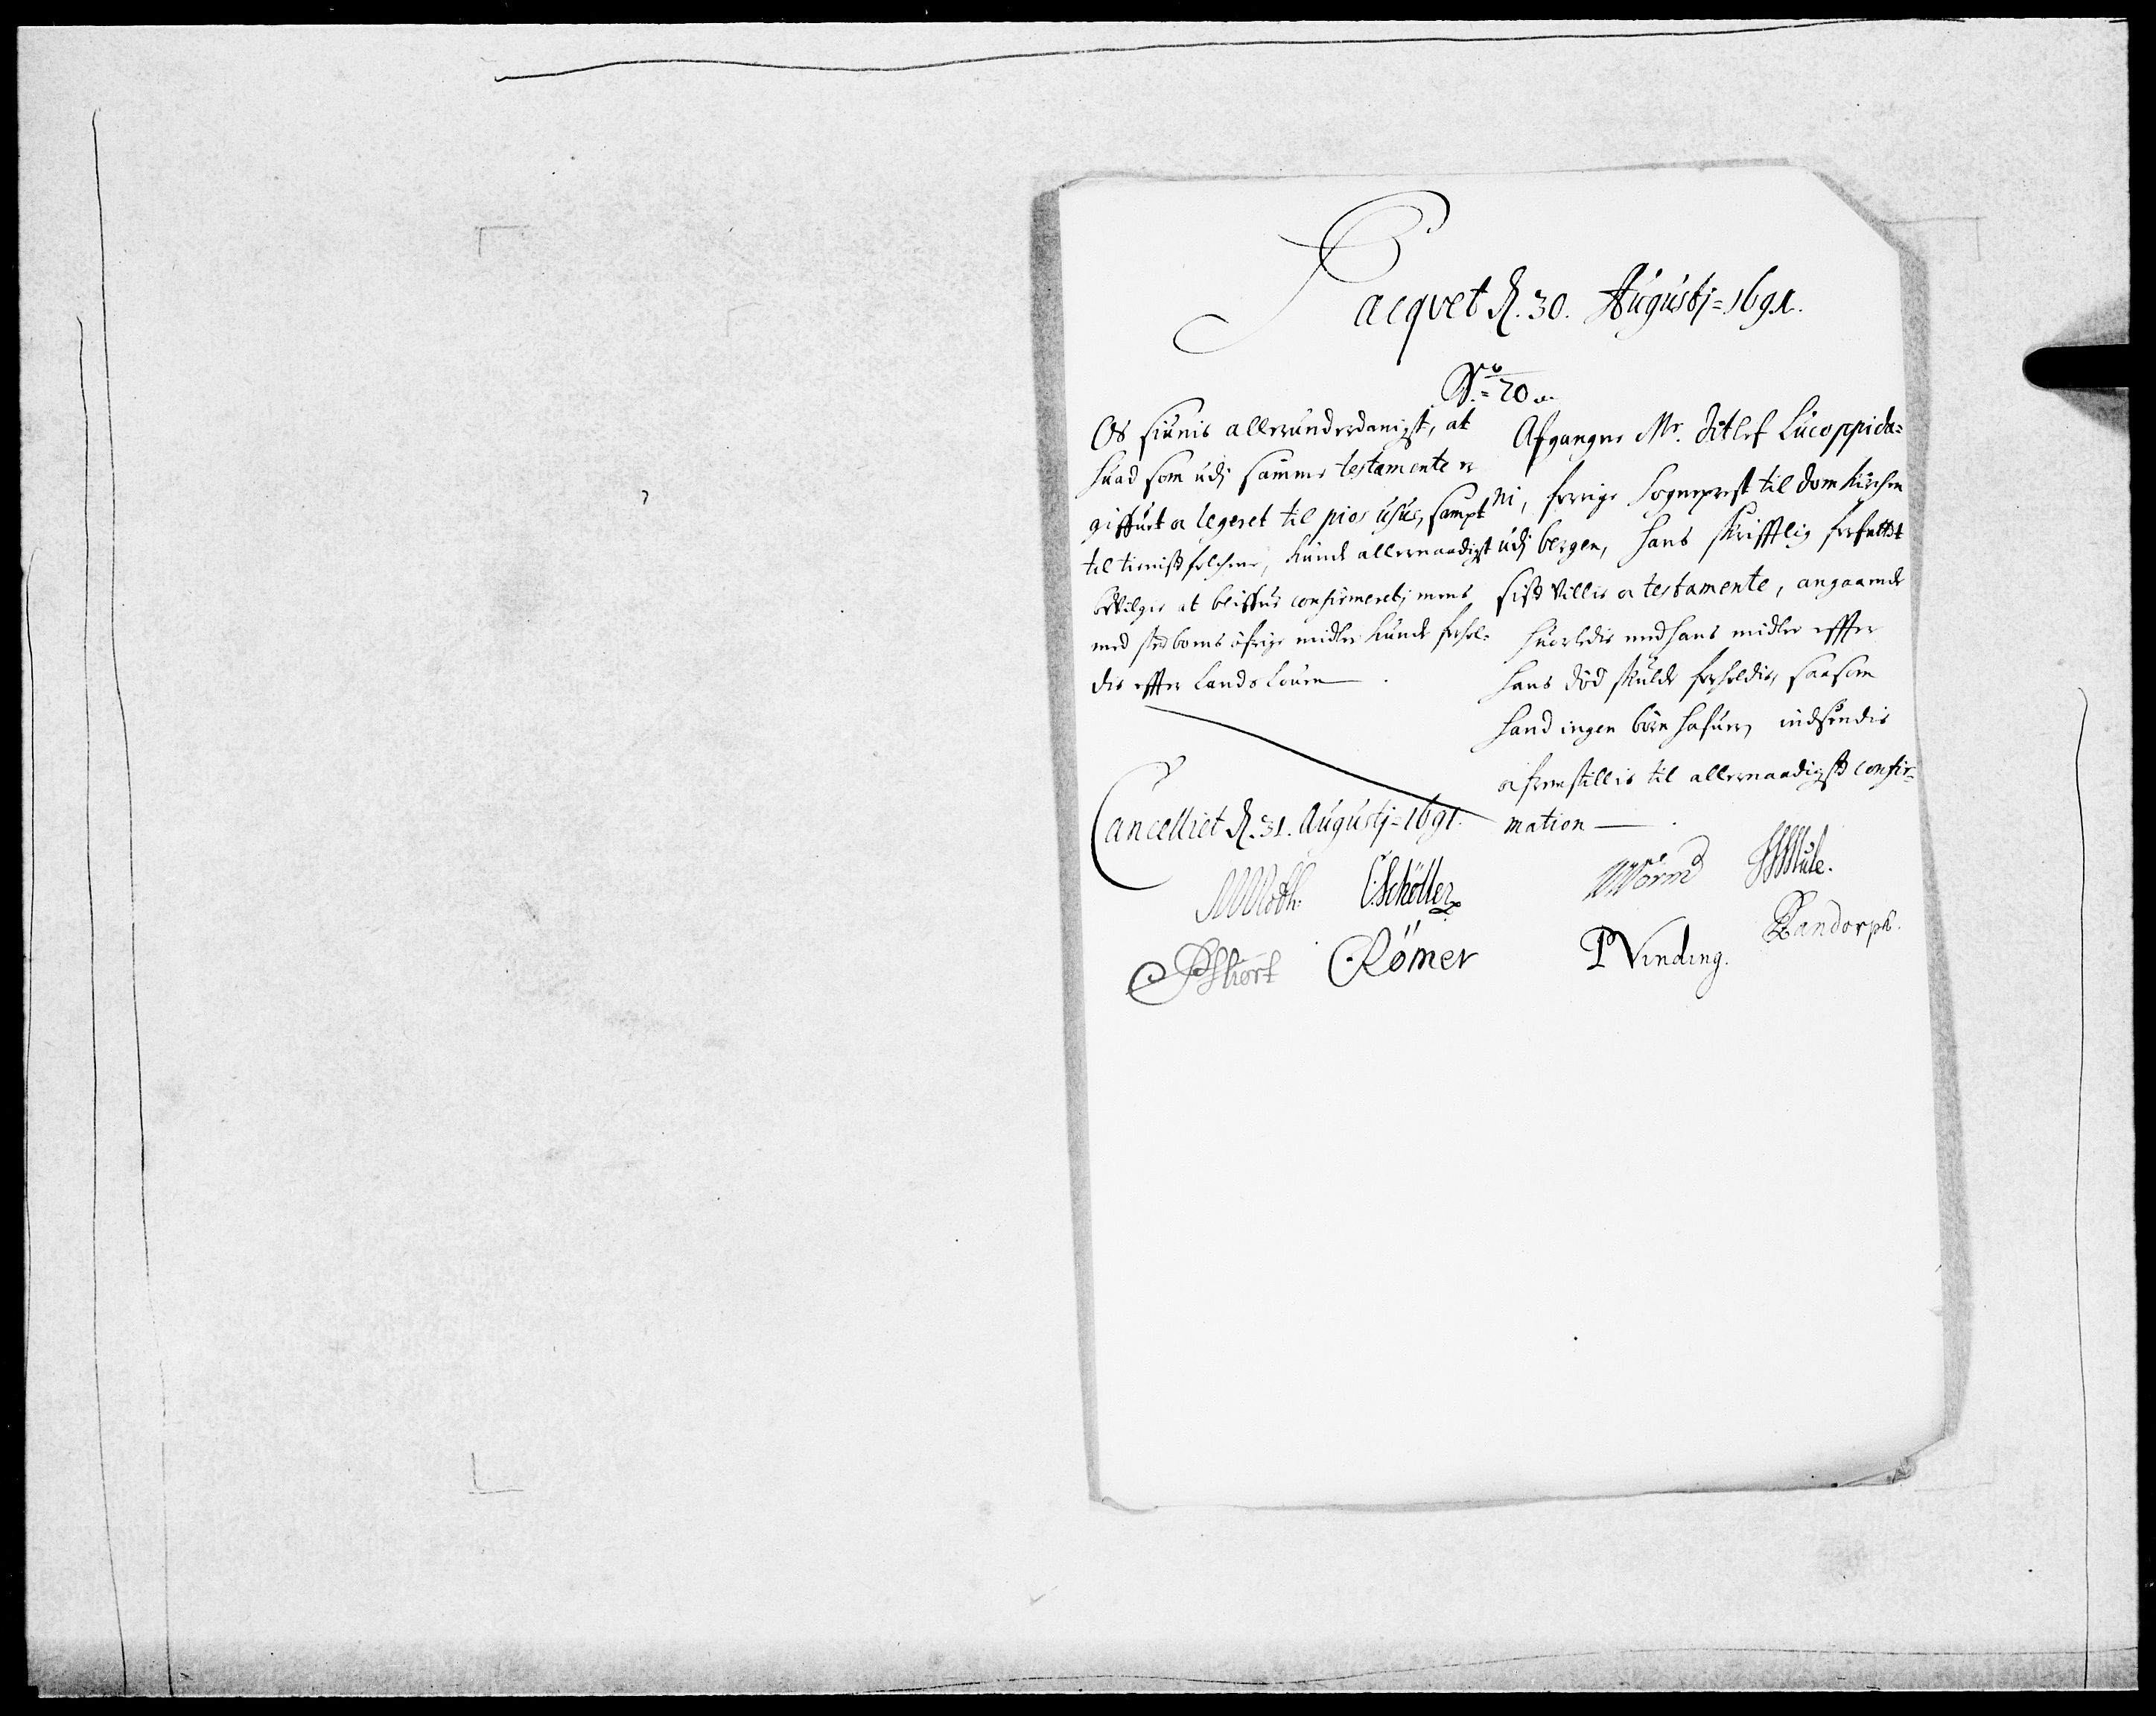 Pacqvet d. 30. Augustj = 1691.
No = 20
Afgangne Mr. Ditlef Lucoppida=
ni, forrige Sogneprest til Domkirchen
udj bergen, hans skrifftlig forfattet
sidst villie oc testamente, angaaende
huorledis med hans midler effter
hans död skulde forholdis, saasom
hand ingen börn hafuer, indsendis
oc fremstillis til allernaadigste confir=
mation
Os siunis allerunderdanigst, at
huad som udj samme testamente er
giffuet oc legeret til pios usus, sampt
til tienistefolchene, kunde allernaadigst
bevilgis at bliffue confirmeret; mens
med sterboens öfrige midler kunde forhol=
dis effter Lands Louen
Cancelliet d. 31. Augustj = 1691.
MMoth. C. Schöller WWorm HMule.
PSkiort ORömer PVinding. Randorph.